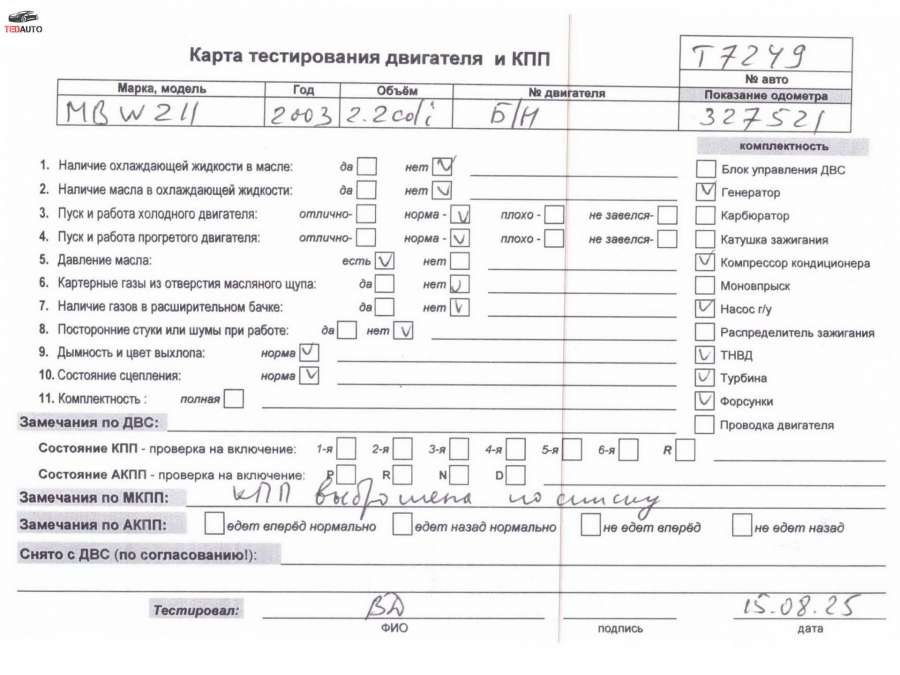 TEDAUTO
Карта тестирования двигателя и КПП
T7249
№ авто
Марка, модель Год Объём № двигателя Показание одометра
MB W211 2003 2.2cdi Б/Н 327521
комплектность
1. Наличие охлаждающей жидкости в масле: да нет ✓
Блок управления ДВС
2. Наличие масла в охлаждающей жидкости: да нет ✓
✓ Генератор
3. Пуск и работа холодного двигателя: отлично- норма - ✓ плохо - не завелся-
Карбюратор
4. Пуск и работа прогретого двигателя: отлично- норма - ✓ плохо - не завелся-
Катушка зажигания
5. Давление масла: есть ✓ нет
✓ Компрессор кондиционера
6. Картерные газы из отверстия масляного щупа: да нет ✓
Моновпрыск
7. Наличие газов в расширительном бачке: да нет ✓
✓ Насос г/у
8. Посторонние стуки или шумы при работе: да нет ✓
Распределитель зажигания
9. Дымность и цвет выхлопа: норма ✓
✓ ТНВД
10. Состояние сцепления: норма ✓
✓ Турбина
11. Комплектность : полная
✓ Форсунки
Замечания по ДВС:
Проводка двигателя
Состояние КПП - проверка на включение: 1-я 2-я 3-я 4-я 5-я 6-я R
Состояние АКПП - проверка на включение: P R N D
Замечания по МКПП: КПП выброшена по списку
Замечания по АКПП: едет вперёд нормально едет назад нормально не едет вперёд не едет назад
Снято с ДВС (по согласованию!):
Тестировал: ВД 15.08.25
ФИО подпись дата